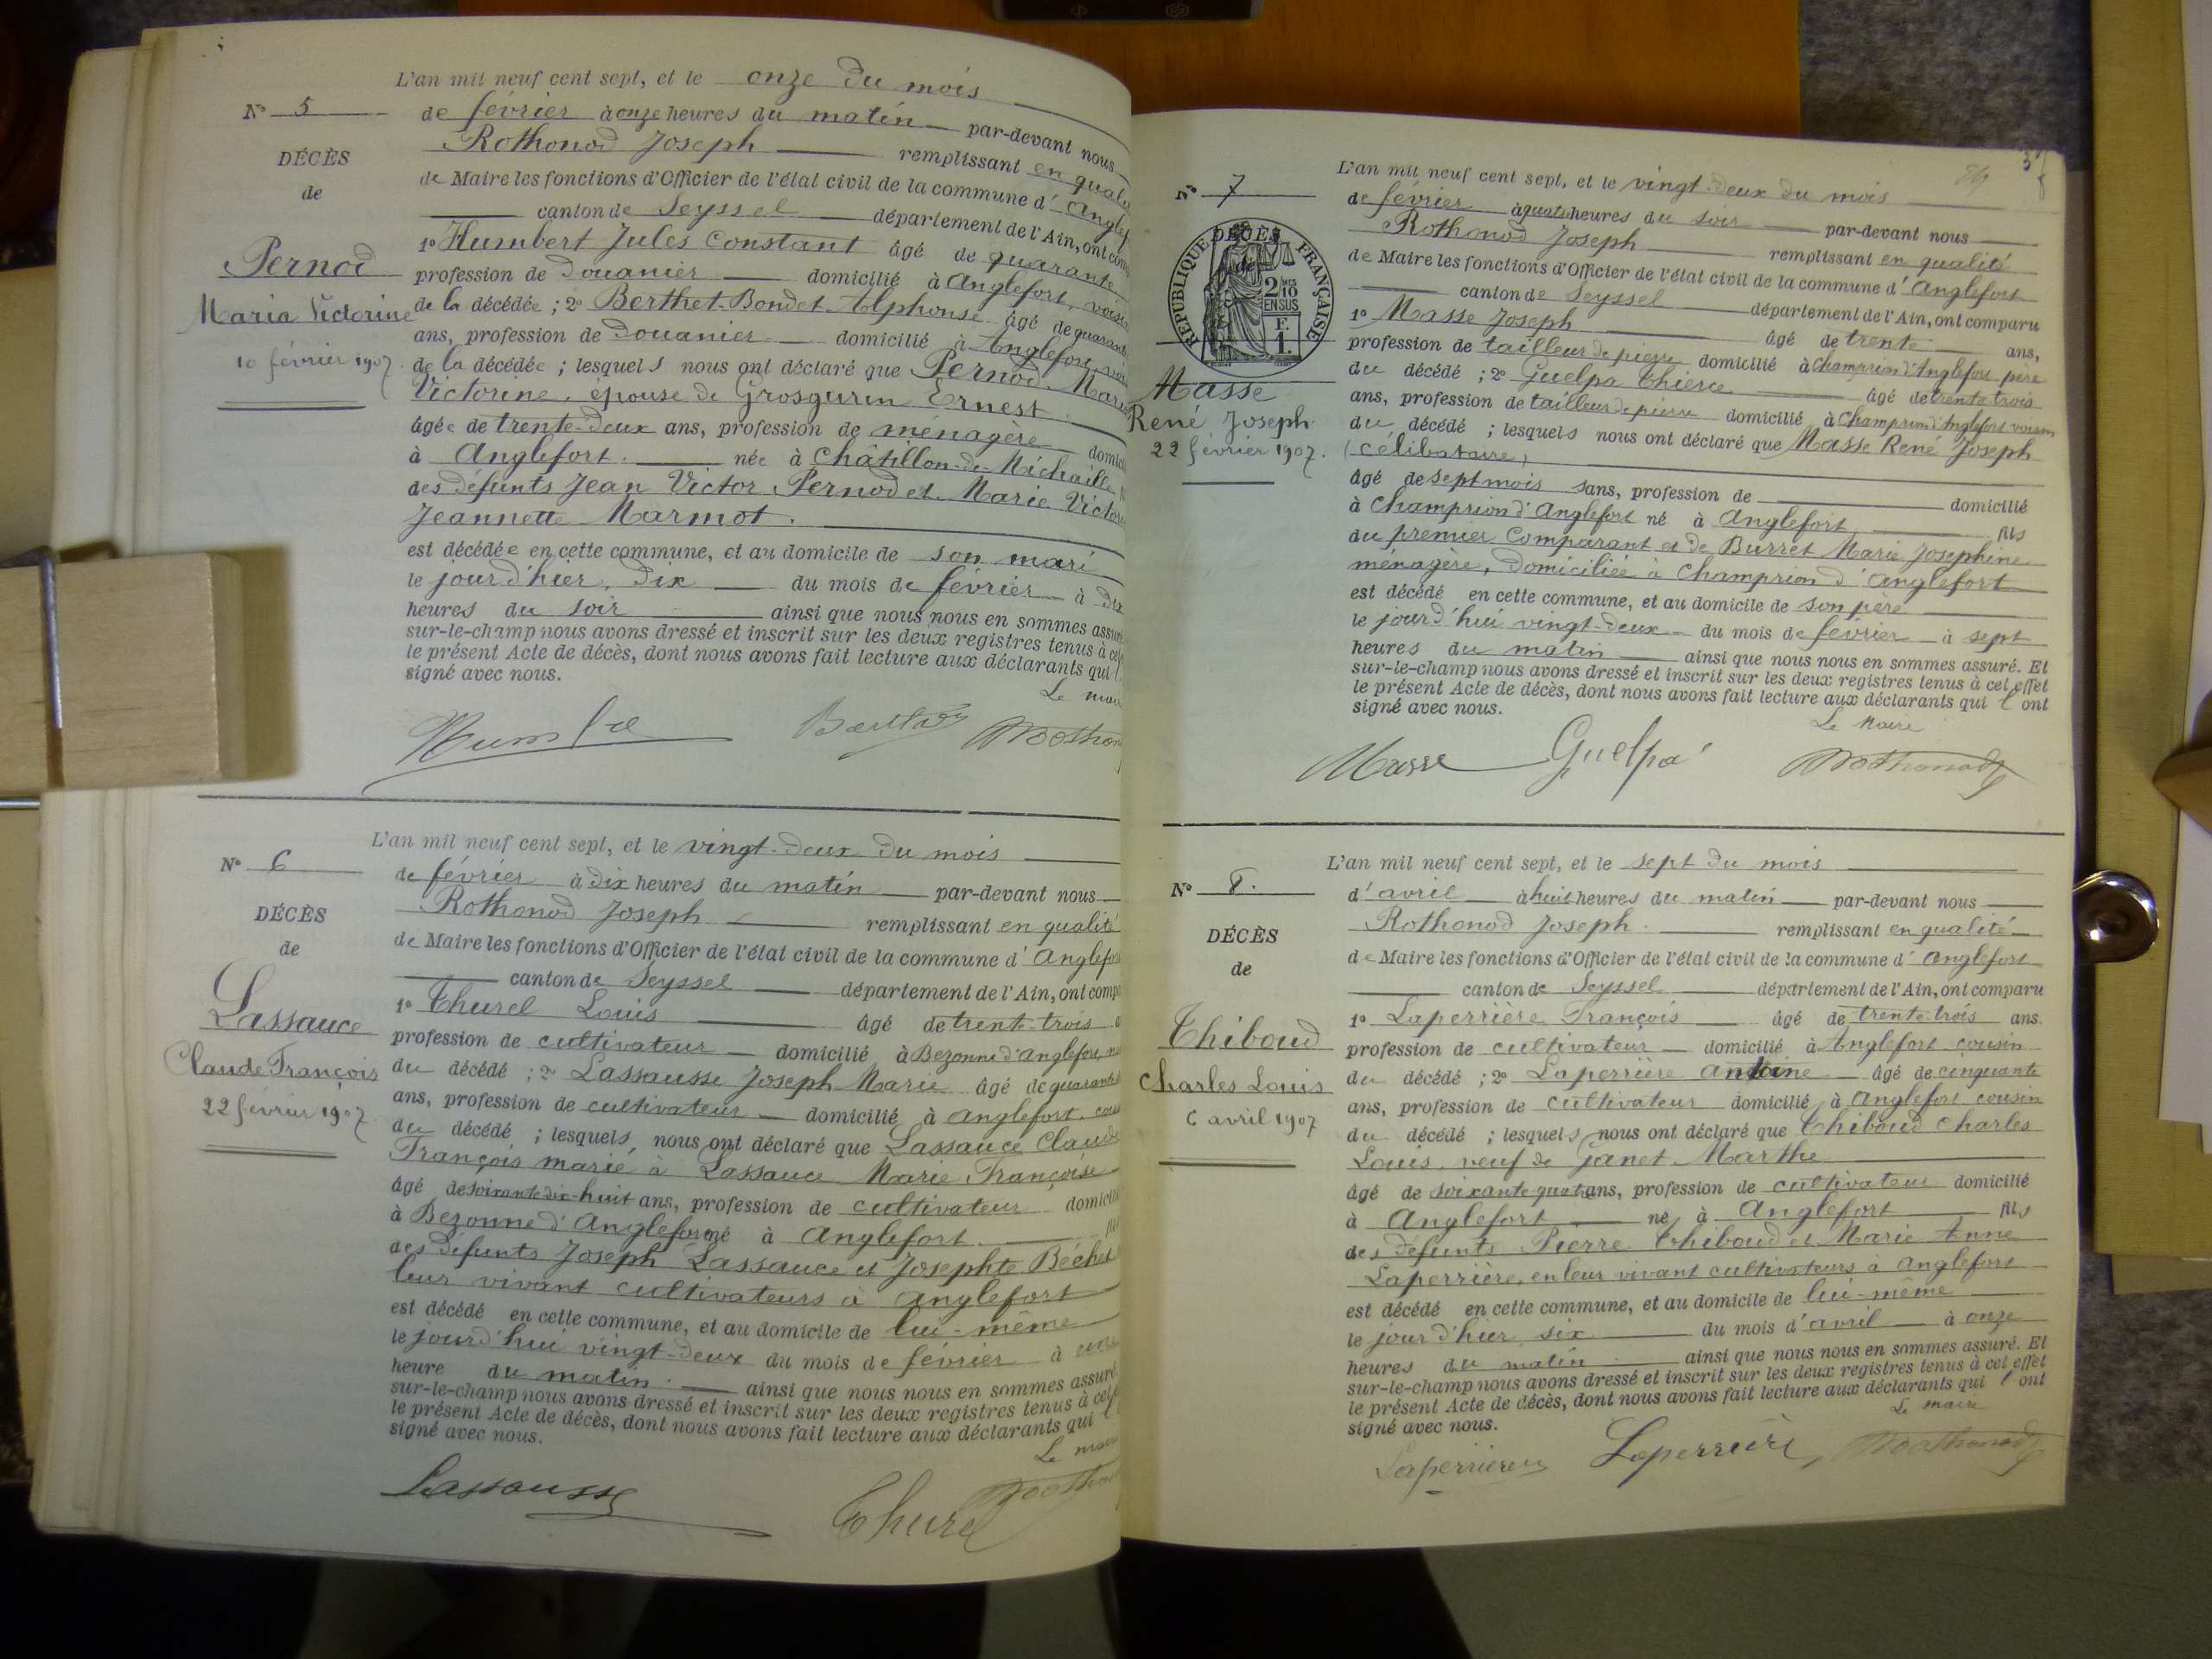 L'an mil neuf cent sept, et le onze du mois
N° 5
de février à onze heures du matin par-devant nous
Rothonod Joseph remplissant en
DÉCÈS
de
de Maire les fonctions d'Officier de l'état civil de la commune d'
canton de Seyssel département de l'Ain, ont
Pernod
Maria Victorine
10 février 1907.
1° Humbert Jules Constant âgé de quarante
profession de Douanier domicilié à Anglefort, voisin
de la décédée ; 2° Berthet-Bondet Alphonse âgé de quarante
ans, profession de Douanier domicilié à Anglefort
de la décédée ; lesquels nous ont déclaré que Pernod
Victorine, épouse de Grosgurin Ernest
âgée de trente-deux ans, profession de ménagère
à Anglefort. née à Châtillon-de-Michaille
des défunts Jean Victor Pernod et Marie
Jeannette Marmot.
est décédée en cette commune, et au domicile de son mari
le jour d'hier, dix du mois de février à dix
heures du soir ainsi que nous nous en sommes
sur-le-champ nous avons dressé et inscrit sur les deux registres tenus à
le présent Acte de décès, dont nous avons fait lecture aux déclarants qui
signé avec nous.
Le
L'an mil neuf cent sept, et le vingt-deux du mois
N° 6
de février à dix heures du matin par-devant nous
Rothonod Joseph remplissant en qualité
DÉCÈS
de
de Maire les fonctions d'Officier de l'état civil de la commune d'
canton de Seyssel département de l'Ain, ont
Lassauce
Claude François
22 février 1907
1° Thurel Louis âgé de trente-trois
profession de cultivateur domicilié à Bezonne d'Anglefort,
du décédé ; 2° Lassausse Joseph Marie âgé de quarante
ans, profession de cultivateur domicilié à Anglefort,
du décédé ; lesquels nous ont déclaré que Lassauce Claude
François marié à Lassauce Marie Françoise
âgé de soixante dix-huit ans, profession de cultivateur
à Bezonne d'Anglefort né à Anglefort
des défunts Joseph Lassauce et Josephte Béchet
leur vivant cultivateurs à Anglefort
est décédé en cette commune, et au domicile de lui-même
le jourd'hui vingt-deux du mois de février à une
heure du matin. ainsi que nous nous en sommes assuré
sur-le-champ nous avons dressé et inscrit sur les deux registres tenus à
le présent Acte de décès, dont nous avons fait lecture aux déclarants qui
signé avec nous.
Le
Lassausse Thurel
L'an mil neuf cent sept, et le vingt-deux du mois
N° 7
de février à quatre heures du soir par-devant nous
Rothonod Joseph remplissant en qualité
DÉCÈS
de
RÉPUBLIQUE FRANÇAISE
2 MES 10
EN SUS
F.
1.
de Maire les fonctions d'Officier de l'état civil de la commune d'Anglefort
canton de Seyssel département de l'Ain, ont comparu
Masse
René Joseph
22 février 1907.
1° Masse Joseph âgé de trente ans,
profession de tailleur de pierre domicilié à Champrion d'Anglefort père
du décédé ; 2° Guelpa Thierce âgé de trente-trois
ans, profession de tailleur de pierre domicilié à Champrion d'Anglefort voisin
du décédé ; lesquels nous ont déclaré que Masse René Joseph
(célibataire)
âgé de sept mois sans, profession de domicilié
à Champrion d'Anglefort né à Anglefort fils
du premier comparant et de Burret Marie Josephine
ménagère, domiciliée à Champrion d'Anglefort
est décédé en cette commune, et au domicile de son père
le jourd'hui vingt-deux du mois de février à sept
heures du matin ainsi que nous nous en sommes assuré. Et
sur-le-champ nous avons dressé et inscrit sur les deux registres tenus à cet effet
le présent Acte de décès, dont nous avons fait lecture aux déclarants qui l'ont
signé avec nous.
Le Maire
Masse Guelpa Rothonod
L'an mil neuf cent sept, et le sept du mois
N° 8.
d'avril à huit heures du matin par-devant nous
Rothonod Joseph remplissant en qualité
DÉCÈS
de
de Maire les fonctions d'Officier de l'état civil de la commune d'Anglefort
canton de Seyssel département de l'Ain, ont comparu
Thiboud
Charles Louis
6 avril 1907
1° Laperrière François âgé de trente-trois ans.
profession de cultivateur domicilié à Anglefort cousin
du décédé ; 2° Laperrière Antoine âgé de cinquante
ans, profession de cultivateur domicilié à Anglefort cousin
du décédé ; lesquels nous ont déclaré que Thiboud Charles
Louis, veuf de Janet Marthe
âgé de soixante quatre ans, profession de cultivateur domicilié
à Anglefort né à Anglefort fils
des défunts Pierre Thiboud et Marie Anne
Laperrière, en leur vivant cultivateurs à Anglefort
est décédé en cette commune, et au domicile de lui-même
le jour d'hier six du mois d'avril à onze
heures du matin ainsi que nous nous en sommes assuré. Et
sur-le-champ nous avons dressé et inscrit sur les deux registres tenus à cet effet
le présent Acte de décès, dont nous avons fait lecture aux déclarants qui l'ont
signé avec nous.
Le maire
Laperrière Laperrière Rothonod